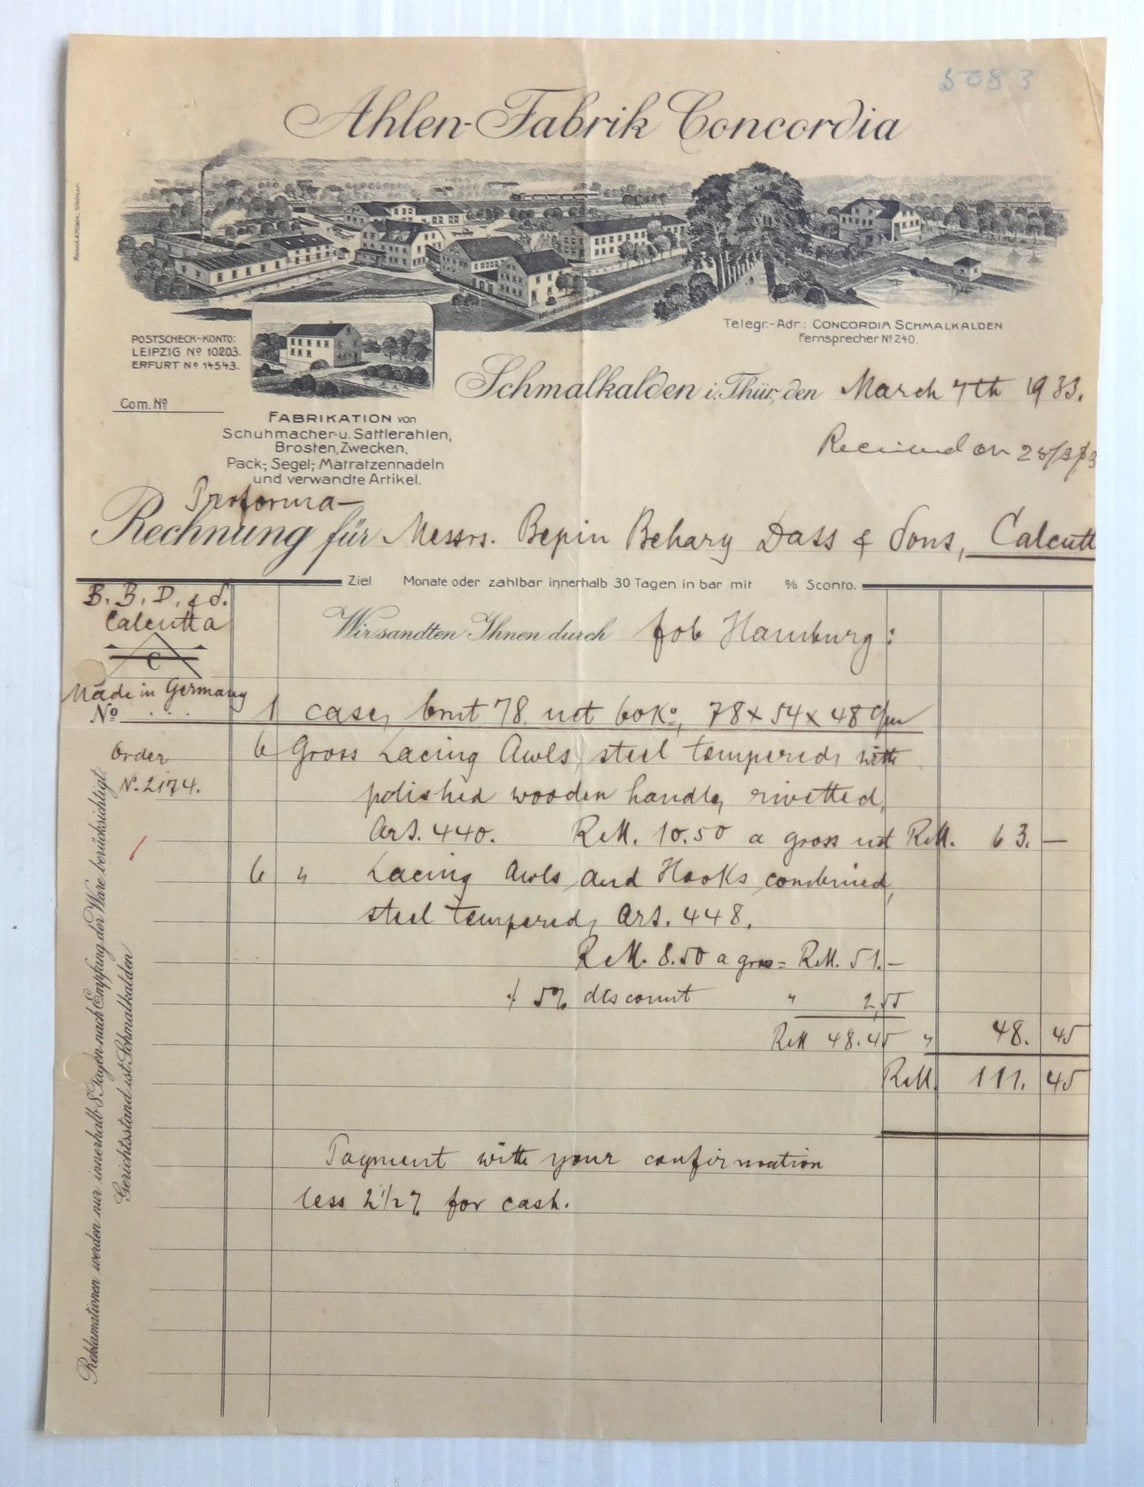 5083
Ahlen-Fabrik Concordia
POSTSCHECK-KONTO:
LEIPZIG Nº 10203.
ERFURT Nº 14543.
Com. Nº
Telegr.-Adr.: CONCORDIA SCHMALKALDEN
Fernsprecher Nº 240.
Schmalkalden i. Thür., den March 7th 1933.
Received on
FABRIKATION von
Schuhmacher-u. Sattlerahlen,
Brosten, Zwecken,
Pack-, Segel-, Matratzennadeln
und verwandte Artikel.
Proforma-
Rechnung für Messrs. Bepin Behary Dass & Sons, Calcutt
Ziel Monate oder zahlbar innerhalb 30 Tagen in bar mit % Sconto.
B. B. D. & S.
Calcutta
C
Made in Germany
Nº . . .
Order
Nº. 2174.
Wir sandten Ihnen durch fob Hamburg:
1 case, brut 78 net 60 Kº, 78 x 54 x 48 c/m
6 Gross Lacing Awls, steel tempered, with
polished wooden handle, rivetted,
Art. 440. RM. 10.50 a gross net RM. 63. —
6 " Lacing Awls and Hooks combined,
steel tempered, Art. 448.
RM. 8.50 a gross = RM. 51.-
% 5% discount " 2,55
RM 48.45 " 48. 45
RM. 111. 45
Payment with your confirmation
less 2 1/2 % for cash.
Reklamationen werden nur innerhalb 8 Tagen nach Empfang der Ware berücksichtigt.
Gerichtsstand ist Schmalkalden